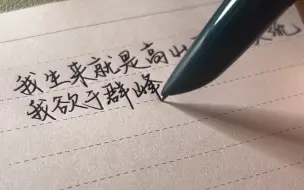 我生来就是高山
我欲于群峰